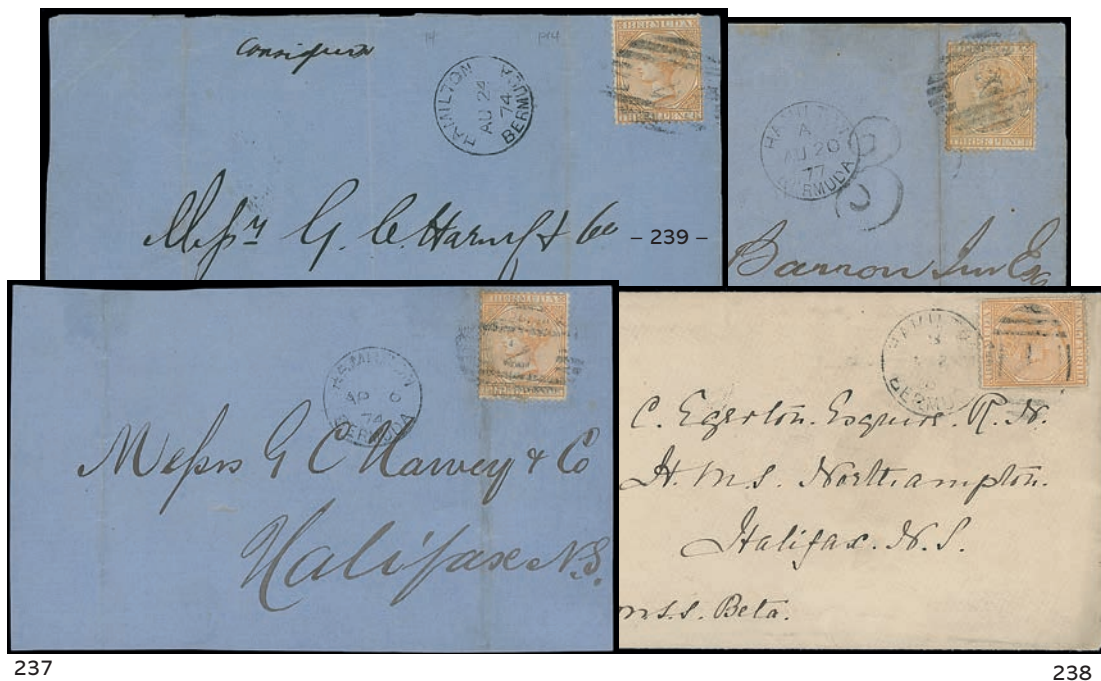 BERMUDA
THREE PENCE
HAMILTON
AU 24
74
BERMUDA
Messrs G. C. Harvey & Co
– 239 –
THREE PENCE
HAMILTON
A
AU 20
77
BERMUDA
3
Barron Jnr Esq
BERMUDA
THREE PENCE
HAMILTON
AP 6
74
BERMUDA
Messrs G C Harvey & Co
Halifax N.S.
237
BERMUDA
HAMILTON
BERMUDA
1
C. Egerton. Esquire. R. N.
H. M. S. Northampton.
Halifax. N. S.
m s.s. Beta.
238